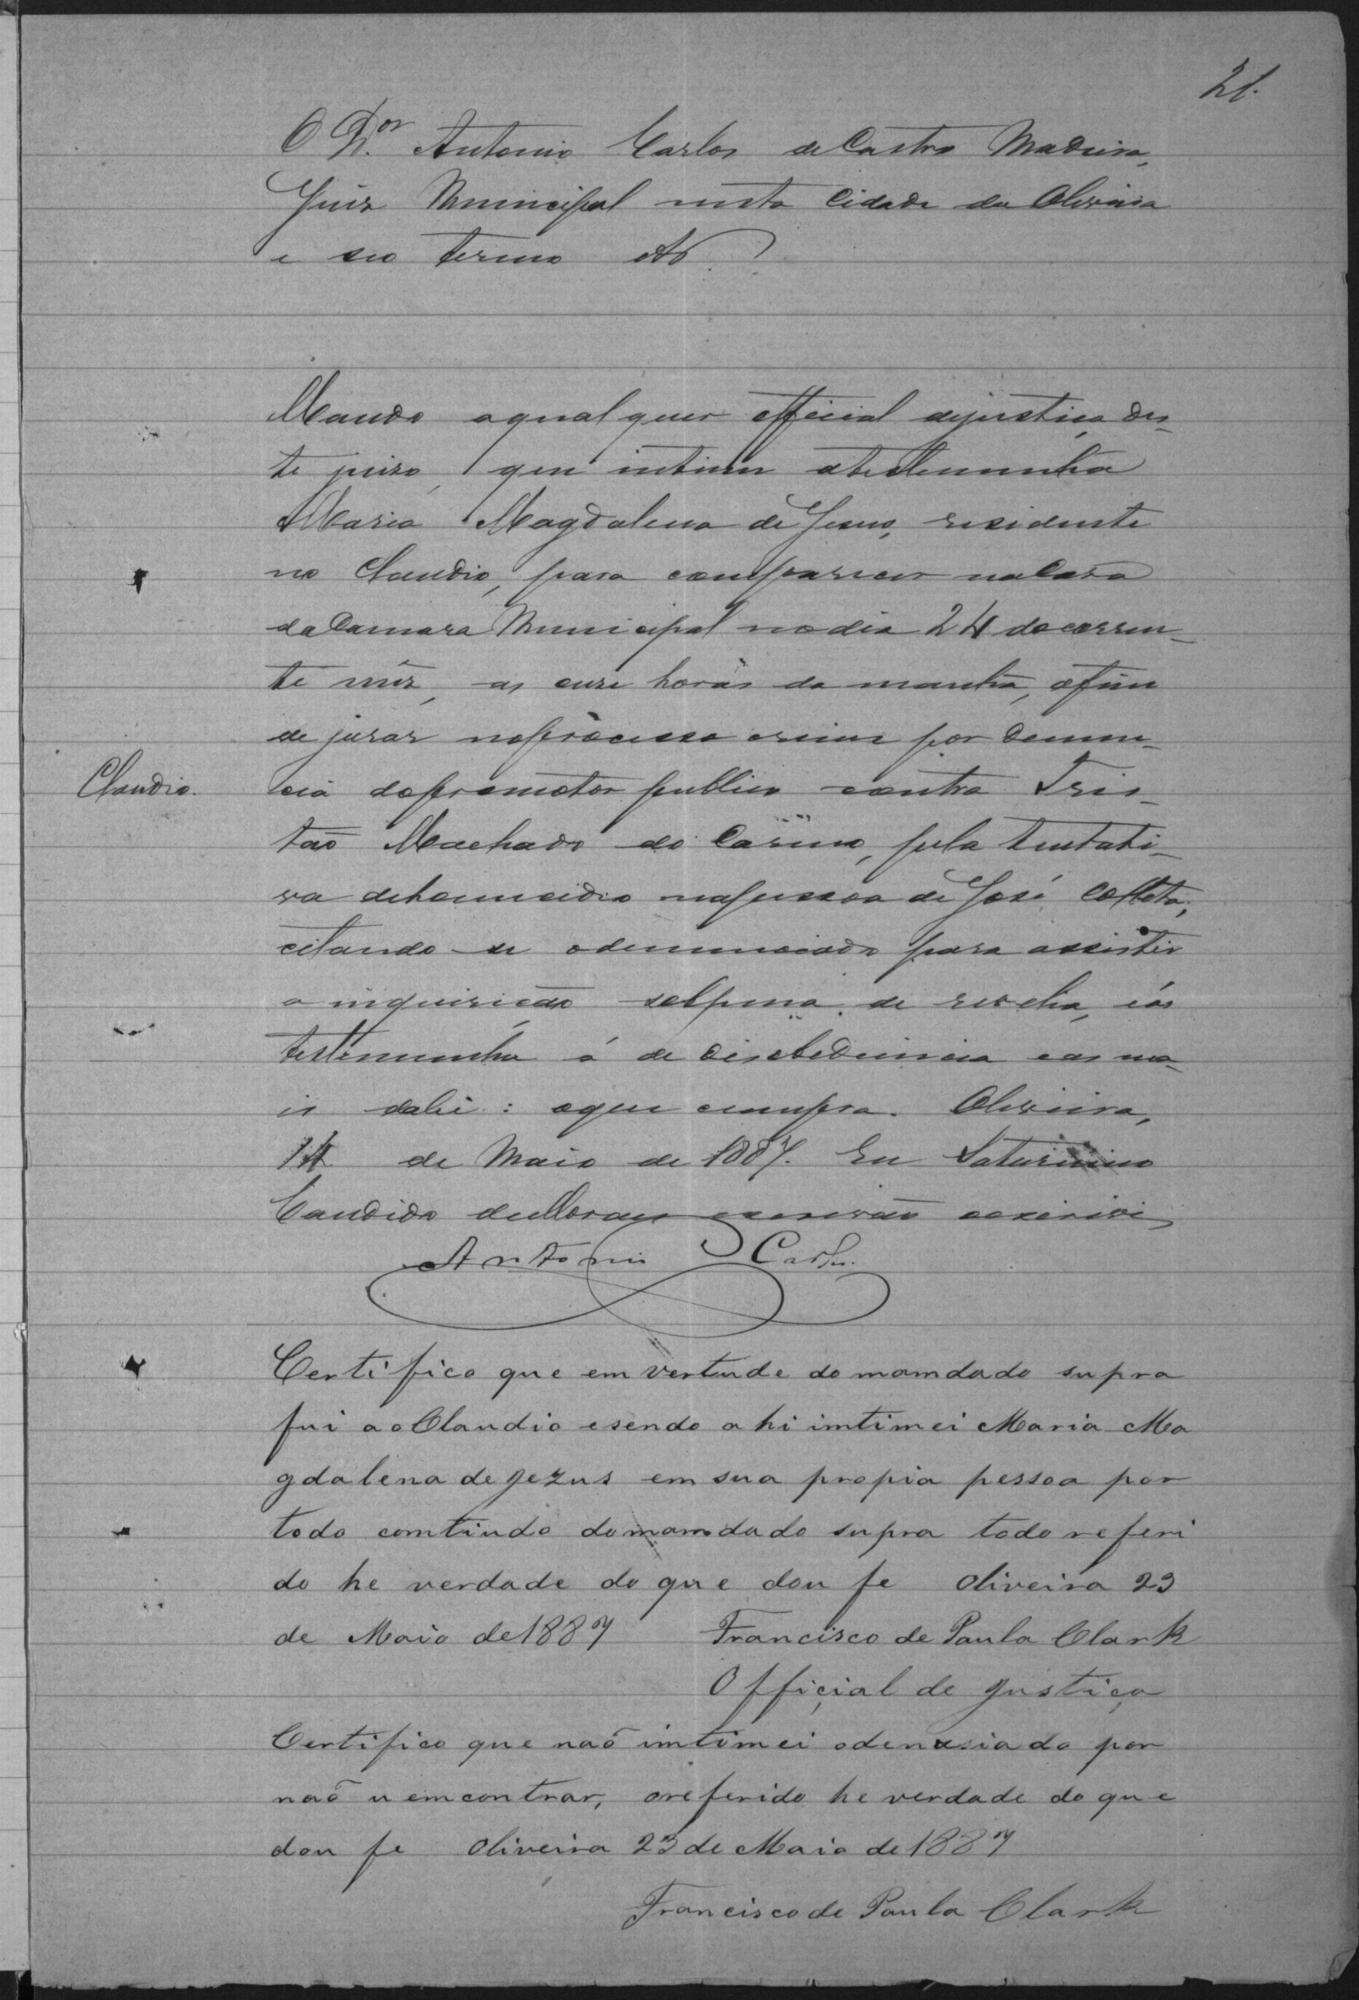 21.
O Dor. Antonio Carlos de Castro Madeira,
Juiz Municipal nesta Cidade da Oliveira
e seo termo etc
Mando a qual quer official dejustiça des-
te juizo, que intime atestemunha
Maria Magdalena de Jesus, residente
no Claudio, para comparecer naCasa
daCamara Municipal nodia 24 docorren-
te mês, as onze horas da manhã, afim
de jurar noprocesso crime por denun-
Claudio.
cia dopromotor publico contra Tris-
tão Machado do Carmo, pela tentati-
va dehomicidio napessoa de José
citando-se odenunciado para assistir
a inquirição sobpena de revelia, eás
testemunha á de desobediencia eas ma-
is dalei: oque cumpra. Oliveira,
14 de Maio de 1887. Eu Saturnino
Candido deMoraes escrivão oescrivi
Antonio Carlos.
Certifico que em vertude do mamdado supra
fui ao Claudio esendo ahi imtimei Maria Ma
gdalena de Jezus em sua propia pessoa por
todo comtiudo domamdado supra todo referi
do he verdade do que dou fe Oliveira 23
de Maio de 1887 Francisco de Paula Clark
Official de Justiça
Certifico que naõ imtimei odenusiado por
naõ u emcontrar, oreferido he verdade do que
dou fe Oliveira 23 de Maio de 1887
Francisco de Paula Clark